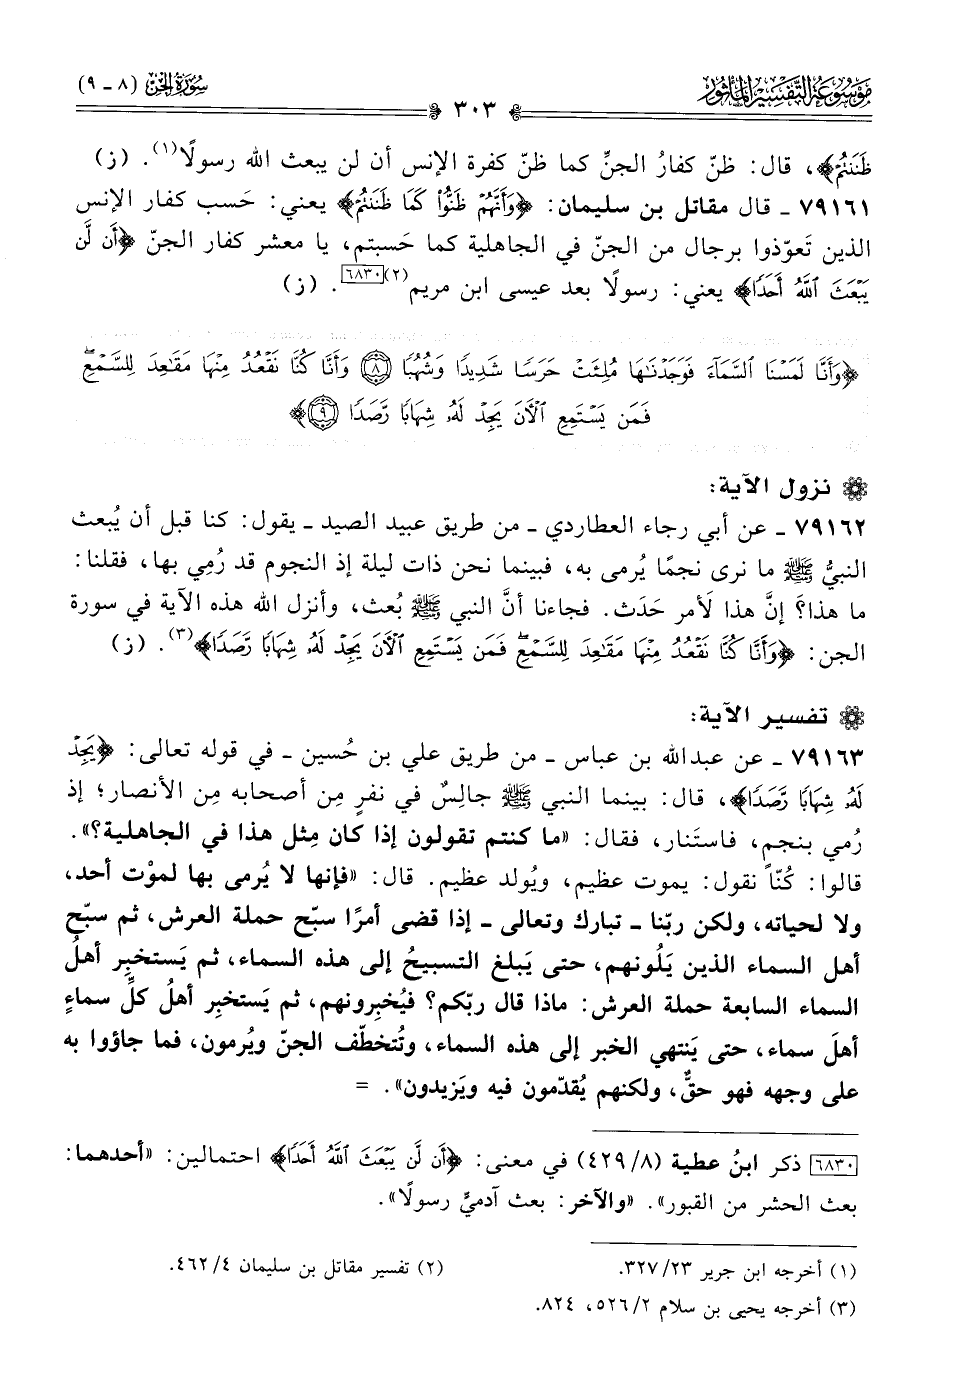 موسوعة التفسير المأثور
سورة الجن (٨ - ٩)
٣٠٣
ظَنَنتُمْ﴾، قال: ظنّ كفارُ الجنِّ كما ظنّ كفرة الإنس أن لن يبعث الله رسولًا(١). (ز)
٧٩١٦١ ـ قال مقاتل بن سليمان: ﴿وَأَنَّهُمْ ظَنُّوا۟ كَمَا ظَنَنتُمْ﴾ يعني: حَسب كفار الإنس
الذين تَعوّذوا برجال من الجنّ في الجاهلية كما حَسبتم، يا معشر كفار الجنّ ﴿أَن لَّن
يَبْعَثَ ٱللَّهُ أَحَدًا﴾ يعني: رسولًا بعد عيسى ابن مريم(٢)[٦٨٣٠]. (ز)
﴿وَأَنَّا لَمَسْنَا ٱلسَّمَآءَ فَوَجَدْنَٰهَا مُلِئَتْ حَرَسًا شَدِيدًا وَشُهُبًا ٨ وَأَنَّا كُنَّا نَقْعُدُ مِنْهَا مَقَٰعِدَ لِلسَّمْعِۖ
فَمَن يَسْتَمِعِ ٱلْآنَ يَجِدْ لَهُۥ شِهَابًا رَّصَدًا ٩﴾
نزول الآية:
٧٩١٦٢ ـ عن أبي رجاء العطاردي ـ من طريق عبيد الصيد ـ يقول: كنا قبل أن يُبعث
النبيُّ ﷺ ما نرى نجمًا يُرمى به، فبينما نحن ذات ليلة إذ النجوم قد رُمِي بها، فقلنا:
ما هذا؟ إنَّ هذا لَأمر حَدَث. فجاءنا أنَّ النبي ﷺ بُعث، وأنزل الله هذه الآية في سورة
الجن: ﴿وَأَنَّا كُنَّا نَقْعُدُ مِنْهَا مَقَٰعِدَ لِلسَّمْعِۖ فَمَن يَسْتَمِعِ ٱلْآنَ يَجِدْ لَهُۥ شِهَابًا رَّصَدًا﴾(٣). (ز)
تفسير الآية:
٧٩١٦٣ ـ عن عبدالله بن عباس ـ من طريق علي بن حُسين ـ في قوله تعالى: ﴿يَجِدْ
لَهُۥ شِهَابًا رَّصَدًا﴾، قال: بينما النبي ﷺ جالِسٌ في نفرٍ مِن أصحابه مِن الأنصار؛ إذ
رُمي بنجم، فاستَنار، فقال: «ما كنتم تقولون إذا كان مِثل هذا في الجاهلية؟».
قالوا: كُنّا نقول: يموت عظيم، ويُولد عظيم. قال: «فإنها لا يُرمى بها لموْت أحد،
ولا لحياته، ولكن ربّنا ـ تبارك وتعالى ـ إذا قضى أمرًا سبّح حملة العرش، ثم سبّح
أهل السماء الذين يَلُونهم، حتى يَبلغ التسبيحُ إلى هذه السماء، ثم يَستخبِر أهلُ
السماء السابعة حملة العرش: ماذا قال ربّكم؟ فيُخبِرونهم، ثم يَستخبِر أهلُ كلِّ سماءٍ
أهلَ سماء، حتى يَنتهي الخبر إلى هذه السماء، وتُتخطّف الجنّ ويُرمون، فما جاؤوا به
على وجهه فهو حقٌّ، ولكنهم يُقدّمون فيه ويَزيدون». =
[٦٨٣٠] ذكر ابنُ عطية (٤٢٩/٨) في معنى: ﴿أَن لَّن يَبْعَثَ ٱللَّهُ أَحَدًا﴾ احتمالين: «أحدهما:
بعث الحشر من القبور». «والآخر: بعث آدميٍّ رسولًا».
(١) أخرجه ابن جرير ٣٢٧/٢٣.
(٢) تفسير مقاتل بن سليمان ٤٦٢/٤.
(٣) أخرجه يحيى بن سلام ٥٢٦/٢، ٨٢٤.